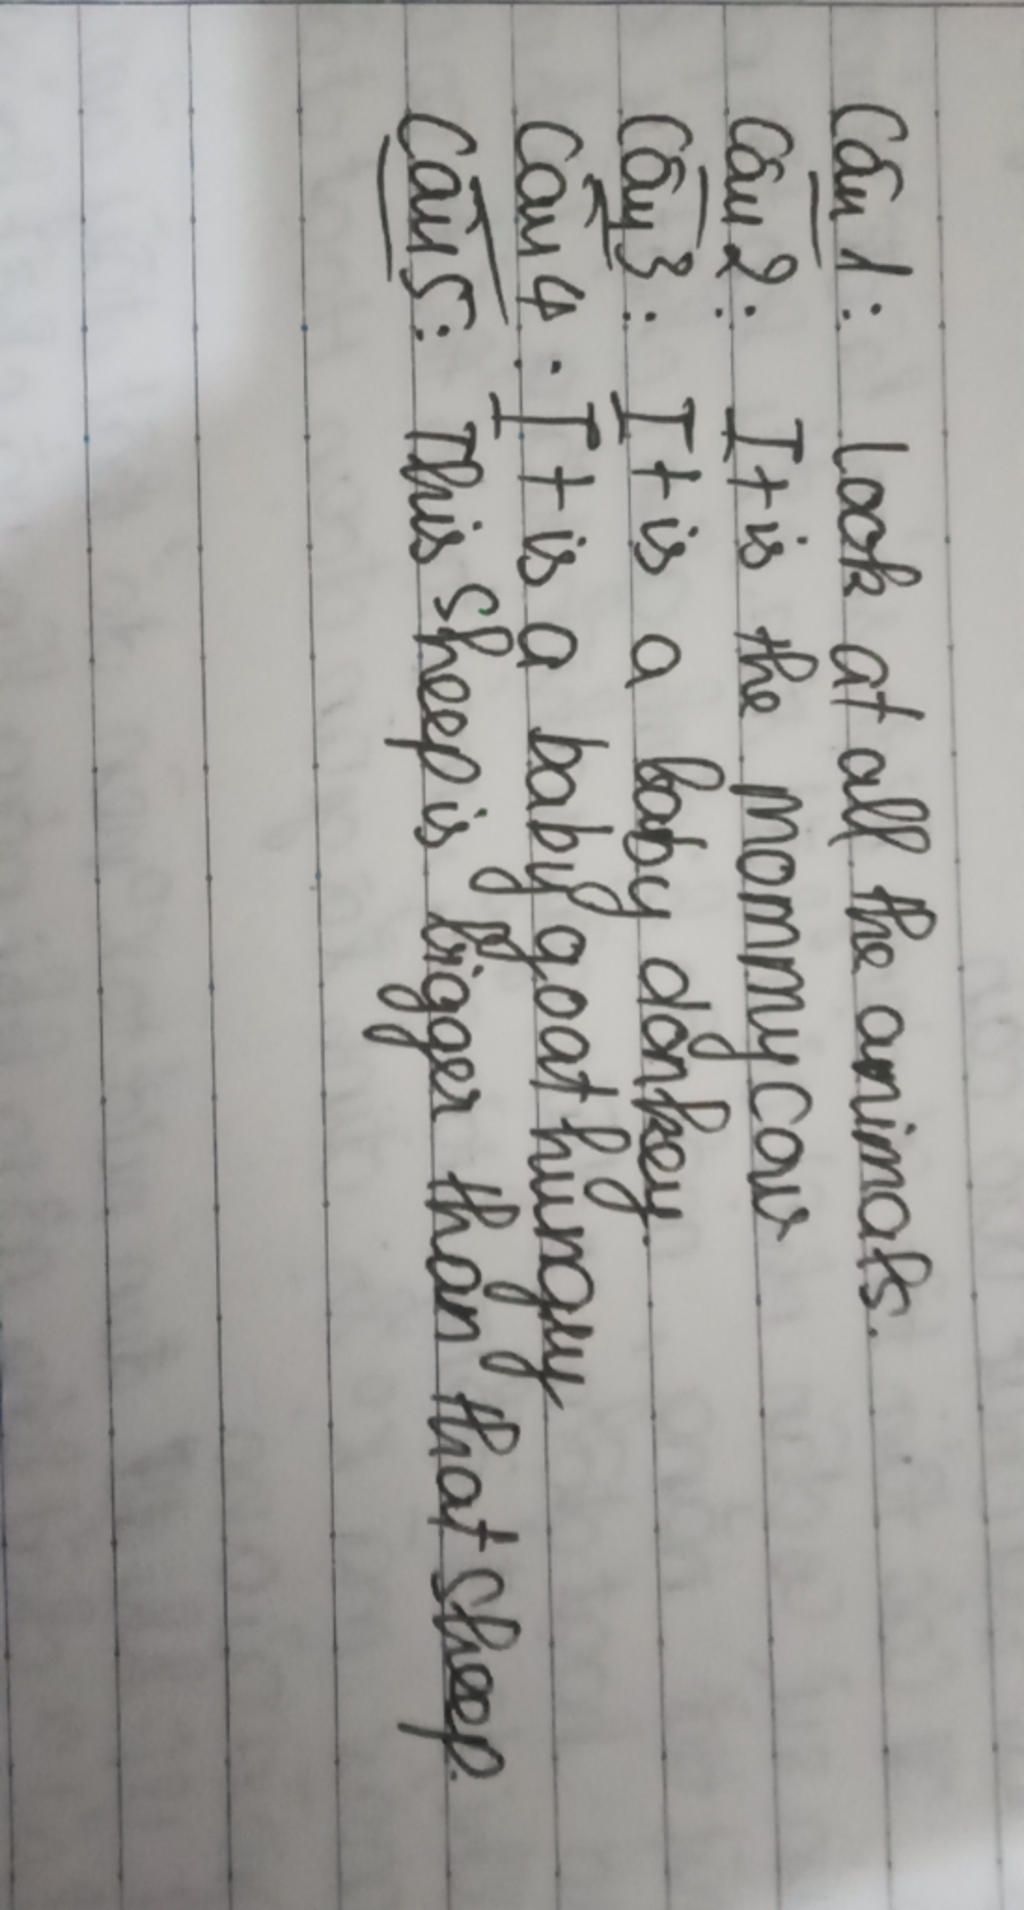 Câu 1: Look at all the animals.
Câu 2: It is the mommy cow
Câu 3: It is a baby donkey.
Câu 4: It is a baby goat hungry
Câu 5: This sheep is biger than that sheep.